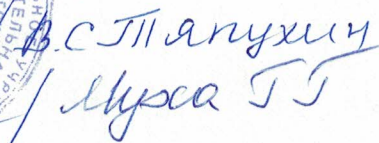 В.С Тяпухин
/ Муха ГГ